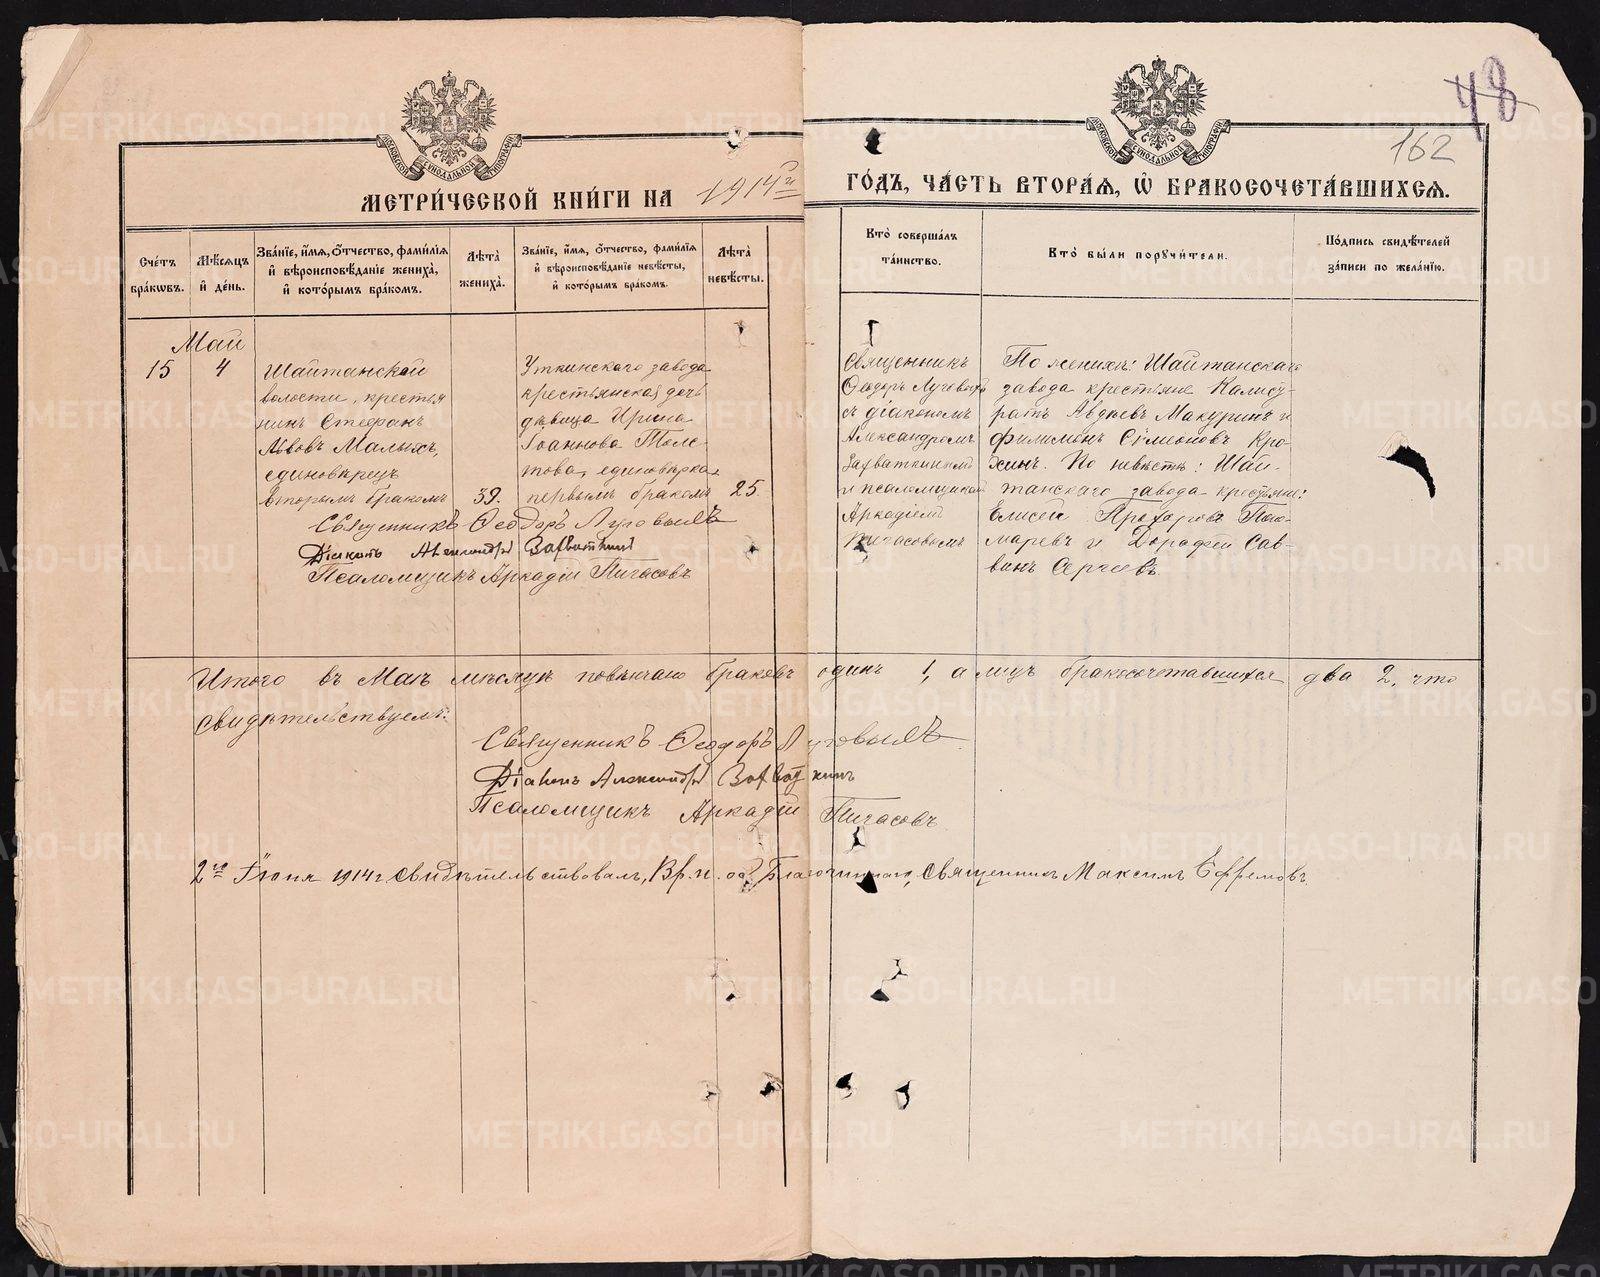 48
162
МОСКОВСКОЙ СѴНОДАЛЬНОЙ ТИПОГРАФІИ
МОСКОВСКОЙ СѴНОДАЛЬНОЙ ТИПОГРАФІИ
МЕТРИ́ЧЕСКОЙ КНИ́ГИ НА 1914 й ГО́ДЪ, ЧА́СТЬ ВТОРА́Я, Ѡ҆ БРАКОСОЧЕТА́ВШИХСЯ.
Сче́тъ бра́кѡвъ.
Мѣ́сяцъ и҆ де́нь.
Зва́нїе, и҆́мя, ѻ҆́тчество, фами́лїя и҆ вѣроисповѣ́данїе жениха̀, и҆ кото́рымъ бра́комъ.
Лѣ́та жениха̀.
Зва́нїе, и҆́мя, ѻ҆́тчество, фами́лїя и҆ вѣроисповѣ́данїе невѣ́сты, и҆ кото́рымъ бра́комъ.
Лѣ́та невѣ́сты.
Кто̀ соверша́лъ та́инство.
Кто̀ бы́ли порꙋчи́тели.
По́дпись свидѣ́телей за́писи по жела́нїю.
Май
15
4
Шайтанской
волости, крестья
нинъ Стефанъ
Львовъ Малыхъ,
единовѣрецъ
вторымъ бракомъ
39.
Уткинскаго завода
крестьянская дочь
дѣвица Ирина
Іоаннова Толс-
това, единовѣрка,
первымъ бракомъ
25.
Священникъ
Ѳеодоръ Луговыхъ
съ діакономъ
Александромъ
Захваткинымъ
и псаломщикомъ
Аркадіемъ
Пигасовымъ
По женихѣ: Шайтанскаго
завода крестьяне Калист-
ратъ Авдѣевъ Макуринъ и
Филимонъ Сѵмеоновъ Кро-
хинъ. По невѣстѣ: Шай-
танскаго завода крестьяне:
Елисей Прохоровъ Поно-
маревъ и Дорофей Сав-
винъ Сергѣевъ.
Священникъ Ѳеодоръ Луговыхъ
Діаконъ Александръ Захваткинъ
Псаломщикъ Аркадій Пигасовъ
Итого въ Маѣ мѣсяцѣ повѣнчано браковъ одинъ 1, а лицъ бракосочетавшихся два 2, что
свидѣтельствуемъ:
Священникъ Ѳеодоръ Луговыхъ
Діаконъ Александръ Захваткинъ
Псаломщикъ Аркадій Пигасовъ
2 го Іюня 1914 г. свидѣтельствовалъ, Вр. и. об. Благочиннаго, Священникъ Максимъ Ефремовъ.
METRIKI.GASO-URAL.RU